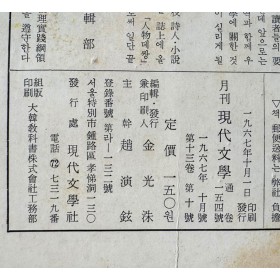 데 앞으로는
學에 關한 것
이 실리게 될
詩人·小說
誌上에
「人物데쌍」
로써 일단끝
輯部
理實踐綱領
遵守한다
郵便送料는 弊社 負擔
一九六七年十月一日 印刷 發行
月刊 現代文學 通卷 一五四號
第十三卷 第十號
一九六七年 十月號
定價 一五○원
編輯·發行 兼印刷人 金光洙
主幹 趙演鉉
登錄番號 第라—一三二號
서울特別市 鍾路區 孝悌洞 一三○
發行處 現代文學社
電話 72 七三一九番
組版 印刷 大韓敎科書株式會社工務部